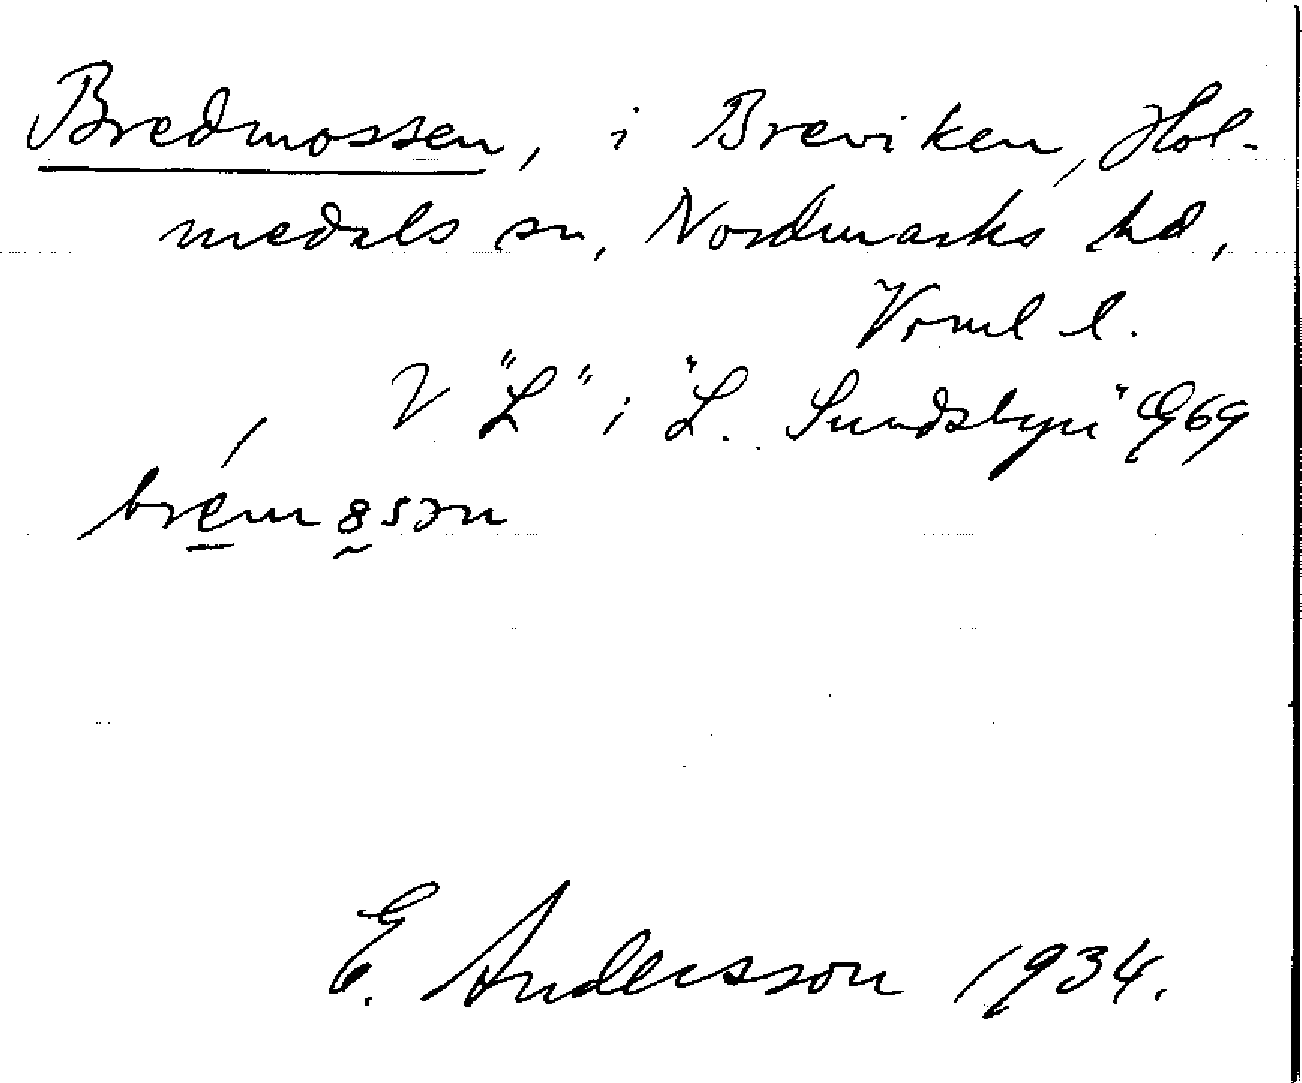 Bredmossen, i Breviken, Hol-
medals sn, Nordmarks hd,
Vrml l.
V "L" i "L. Sundsbyn" G69
brémȣsən
E. Andersson 1934.